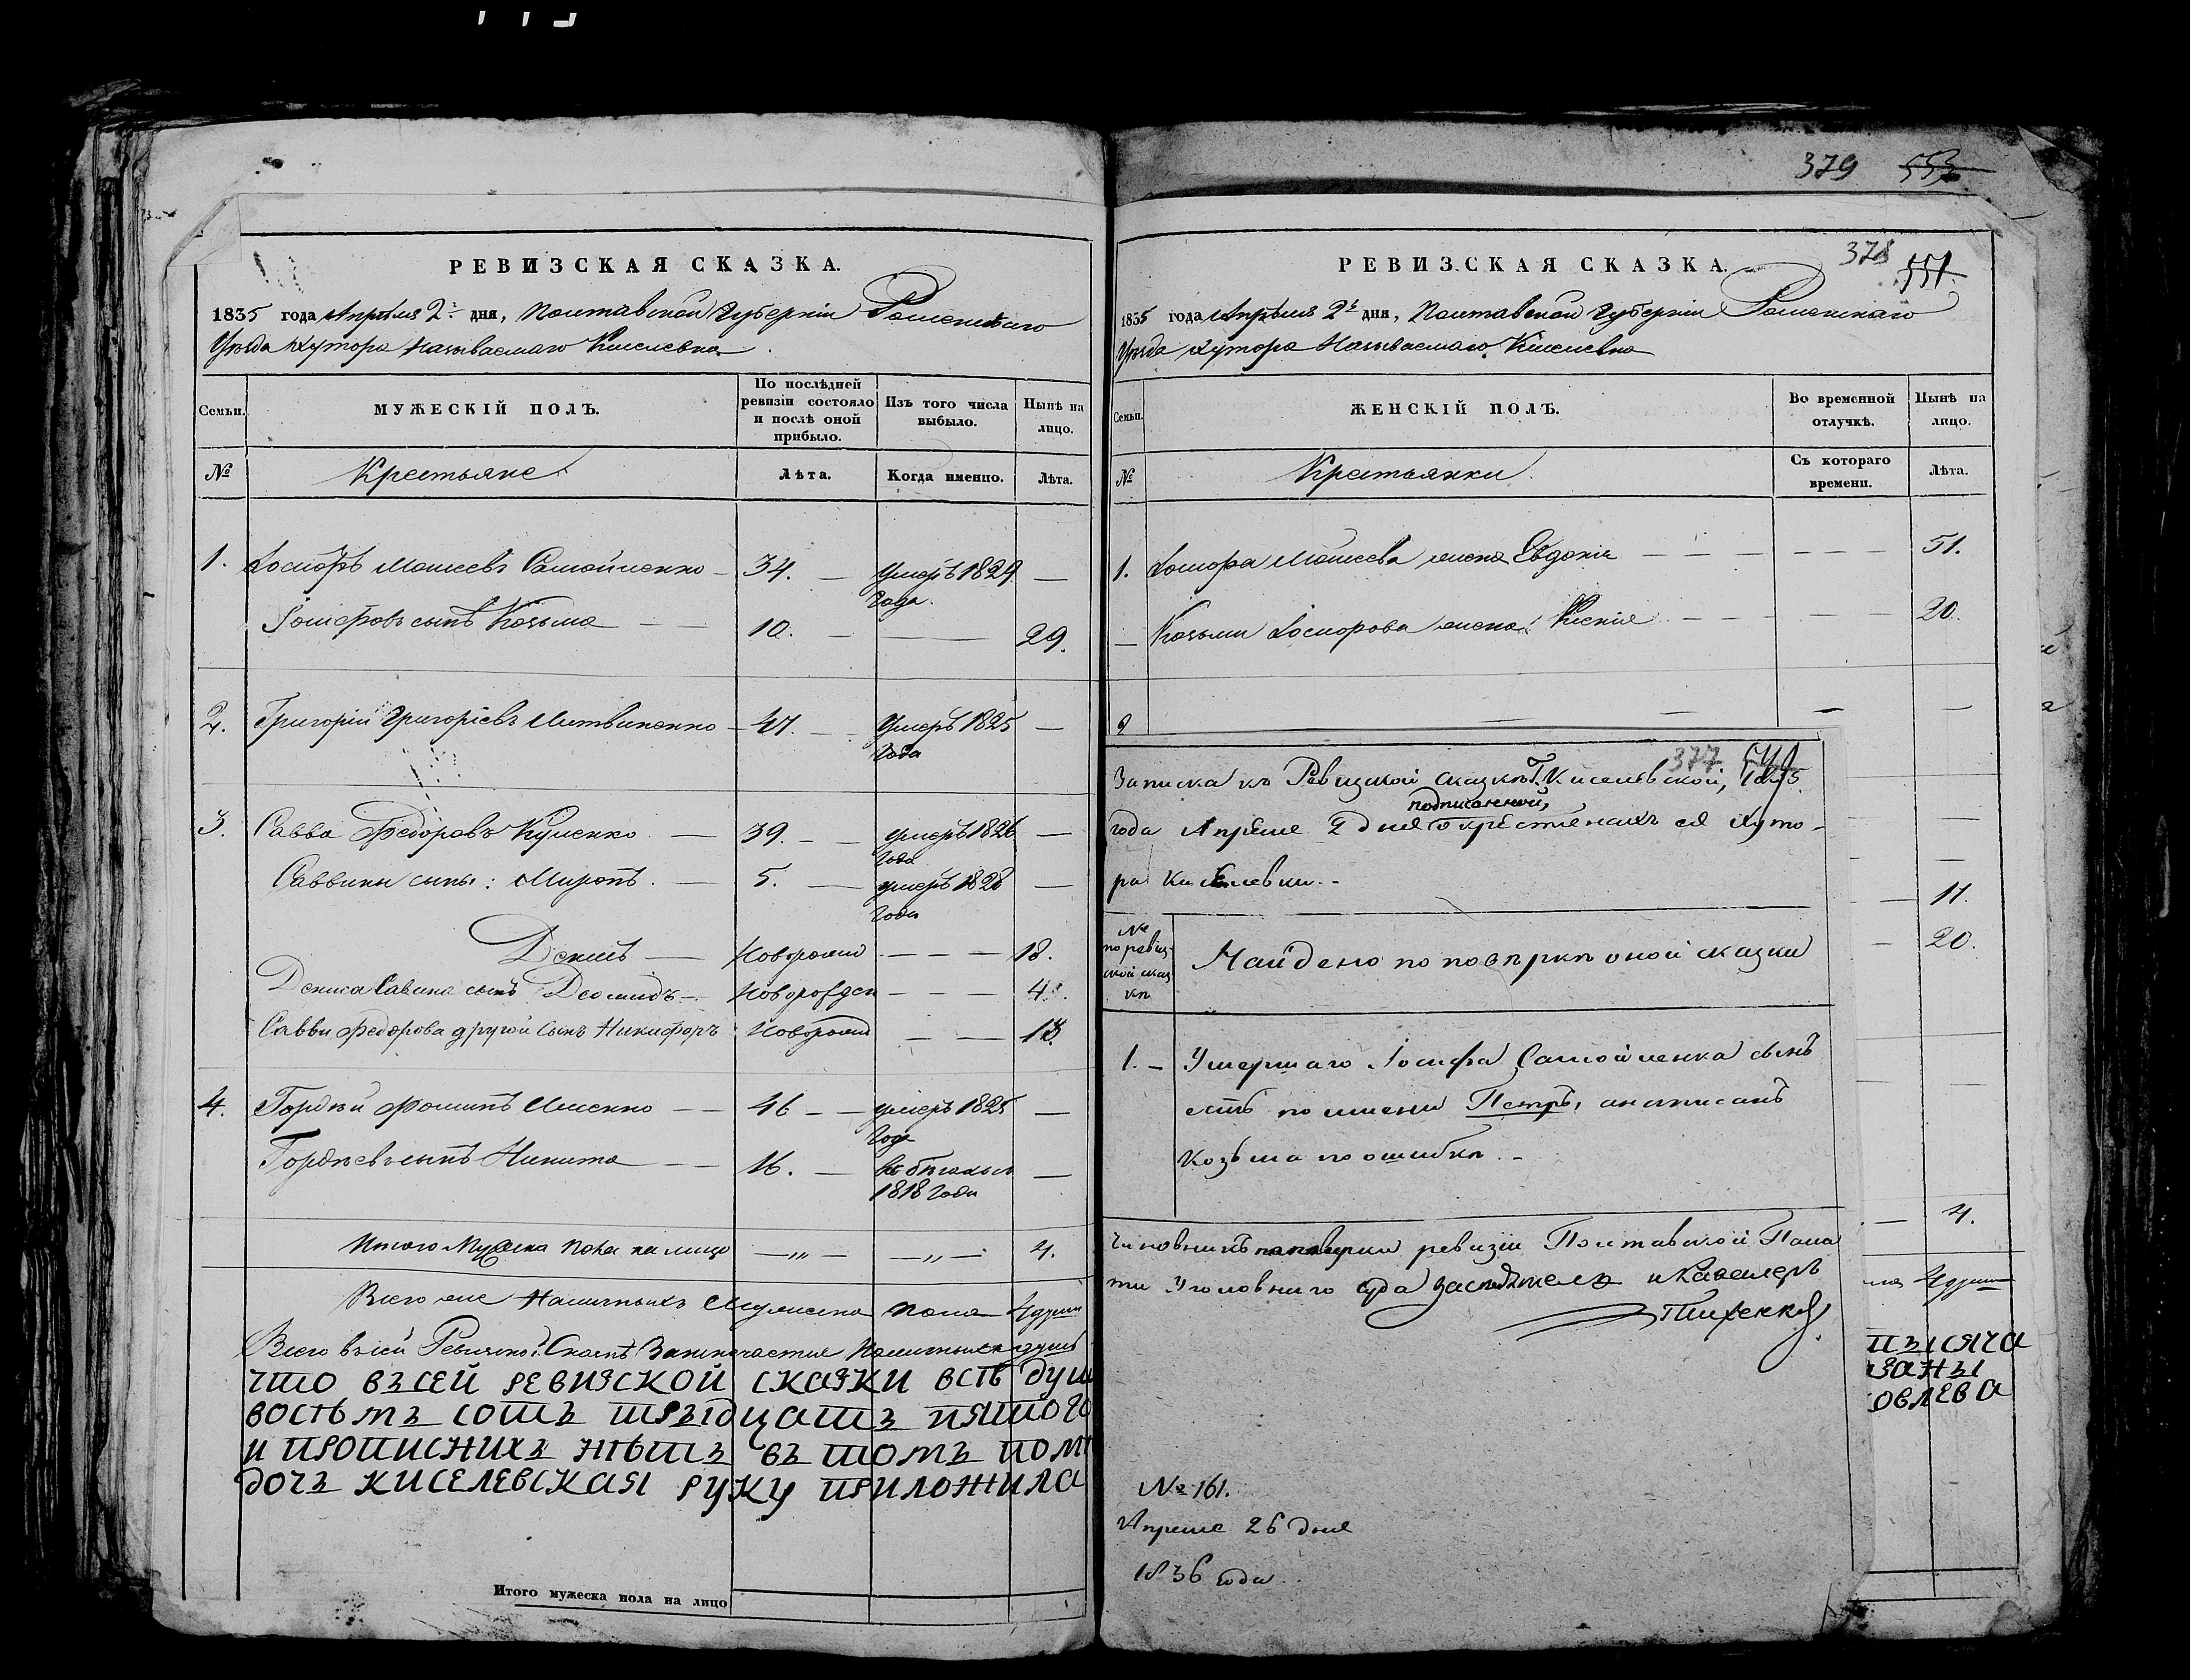 379 553
РЕВИЗСКАЯ СКАЗКА.
1835 года Апрѣля 2го дня, Полтавской Губерніи Роменскаго
Уѣзда Хутора Называемаго Киселевка
Семьи.
МУЖЕСКІЙ ПОЛЪ.
По послѣдней ревизіи состояло и послѣ оной прибыло.
Изъ того числа выбыло.
Нынѣ на лицо.
№
Крестьяне
Лѣта.
Когда именно.
Лѣта.
1. Іосифъ Моисеевъ Самойленко 34. Умеръ 1829 года.
Іосифовъ сынъ Козьма 10. 29.
2. Григорій Григоріевъ Литвиненко 47. Умеръ 1825 года
3. Савва Федоровъ Куценко 39. умеръ 1826 года
Саввины сыны: Миронъ 5. умеръ 1828 года
Денисъ Новорожд 18.
Дениса Савина сынъ Деомидъ Новорожден 4.
Саввы Федорова другой сынъ Никифоръ Новорожд 13.
4. Гордѣй Фоминъ Лисенко 46 умеръ 1825 года
Гордѣевъ сынъ Никита 16. въ бѣгахъ съ 1818 года
Итого Мужеска пола на лицо —„— —„— 4.
Всего же Наличныхъ Мужеска пола 4 души
Всего въ сей Ревизской Сказкѣ Заключается Наличныхъ душъ
что въ сей ревизской сказки всть душ
востьмъ сотъ тръідцатъ пятого
и прописнихъ нѣтъ въ томъ пом
дочъ киселевская руку приложила
Итого мужеска пола на лицо
378 551.
РЕВИЗСКАЯ СКАЗКА.
1835 года Апрѣля 2го дня, Полтавской Губерніи Роменскаго
Уѣзда хутора Называемаго Киселевка
Семьи.
ЖЕНСКІЙ ПОЛЪ.
Во временной отлучкѣ.
Нынѣ на лицо.
№
Крестьянки
Съ котораго времени.
Лѣта.
1. Іосифа Моисеева жена Евдокія 51.
Козьми Іосифова жена Ксенія 20.
2
11.
20.
4.
4 души
377
Записка къ Ревизской сказкѣ Г. Киселевской, 1835.
года Апрѣля 2 дня подписанной, о крестьянахъ ея Хуто-
ра Киселевки.-
№ по ревизской сказкѣ
Найдено по повѣркѣ оной сказки
1. – Умершаго Іосифа Самойленка сынъ
есть по имени Петръ, а написанъ
Козьма по ошибкѣ. –
Чиновникъ по повѣрки ревизіи Полтавской Пала
ти Уголовнаго суда засѣдатель и Кавалеръ
тысяча
заны
овлева
№ 161.
Апрѣля 26 дня
1836 года.